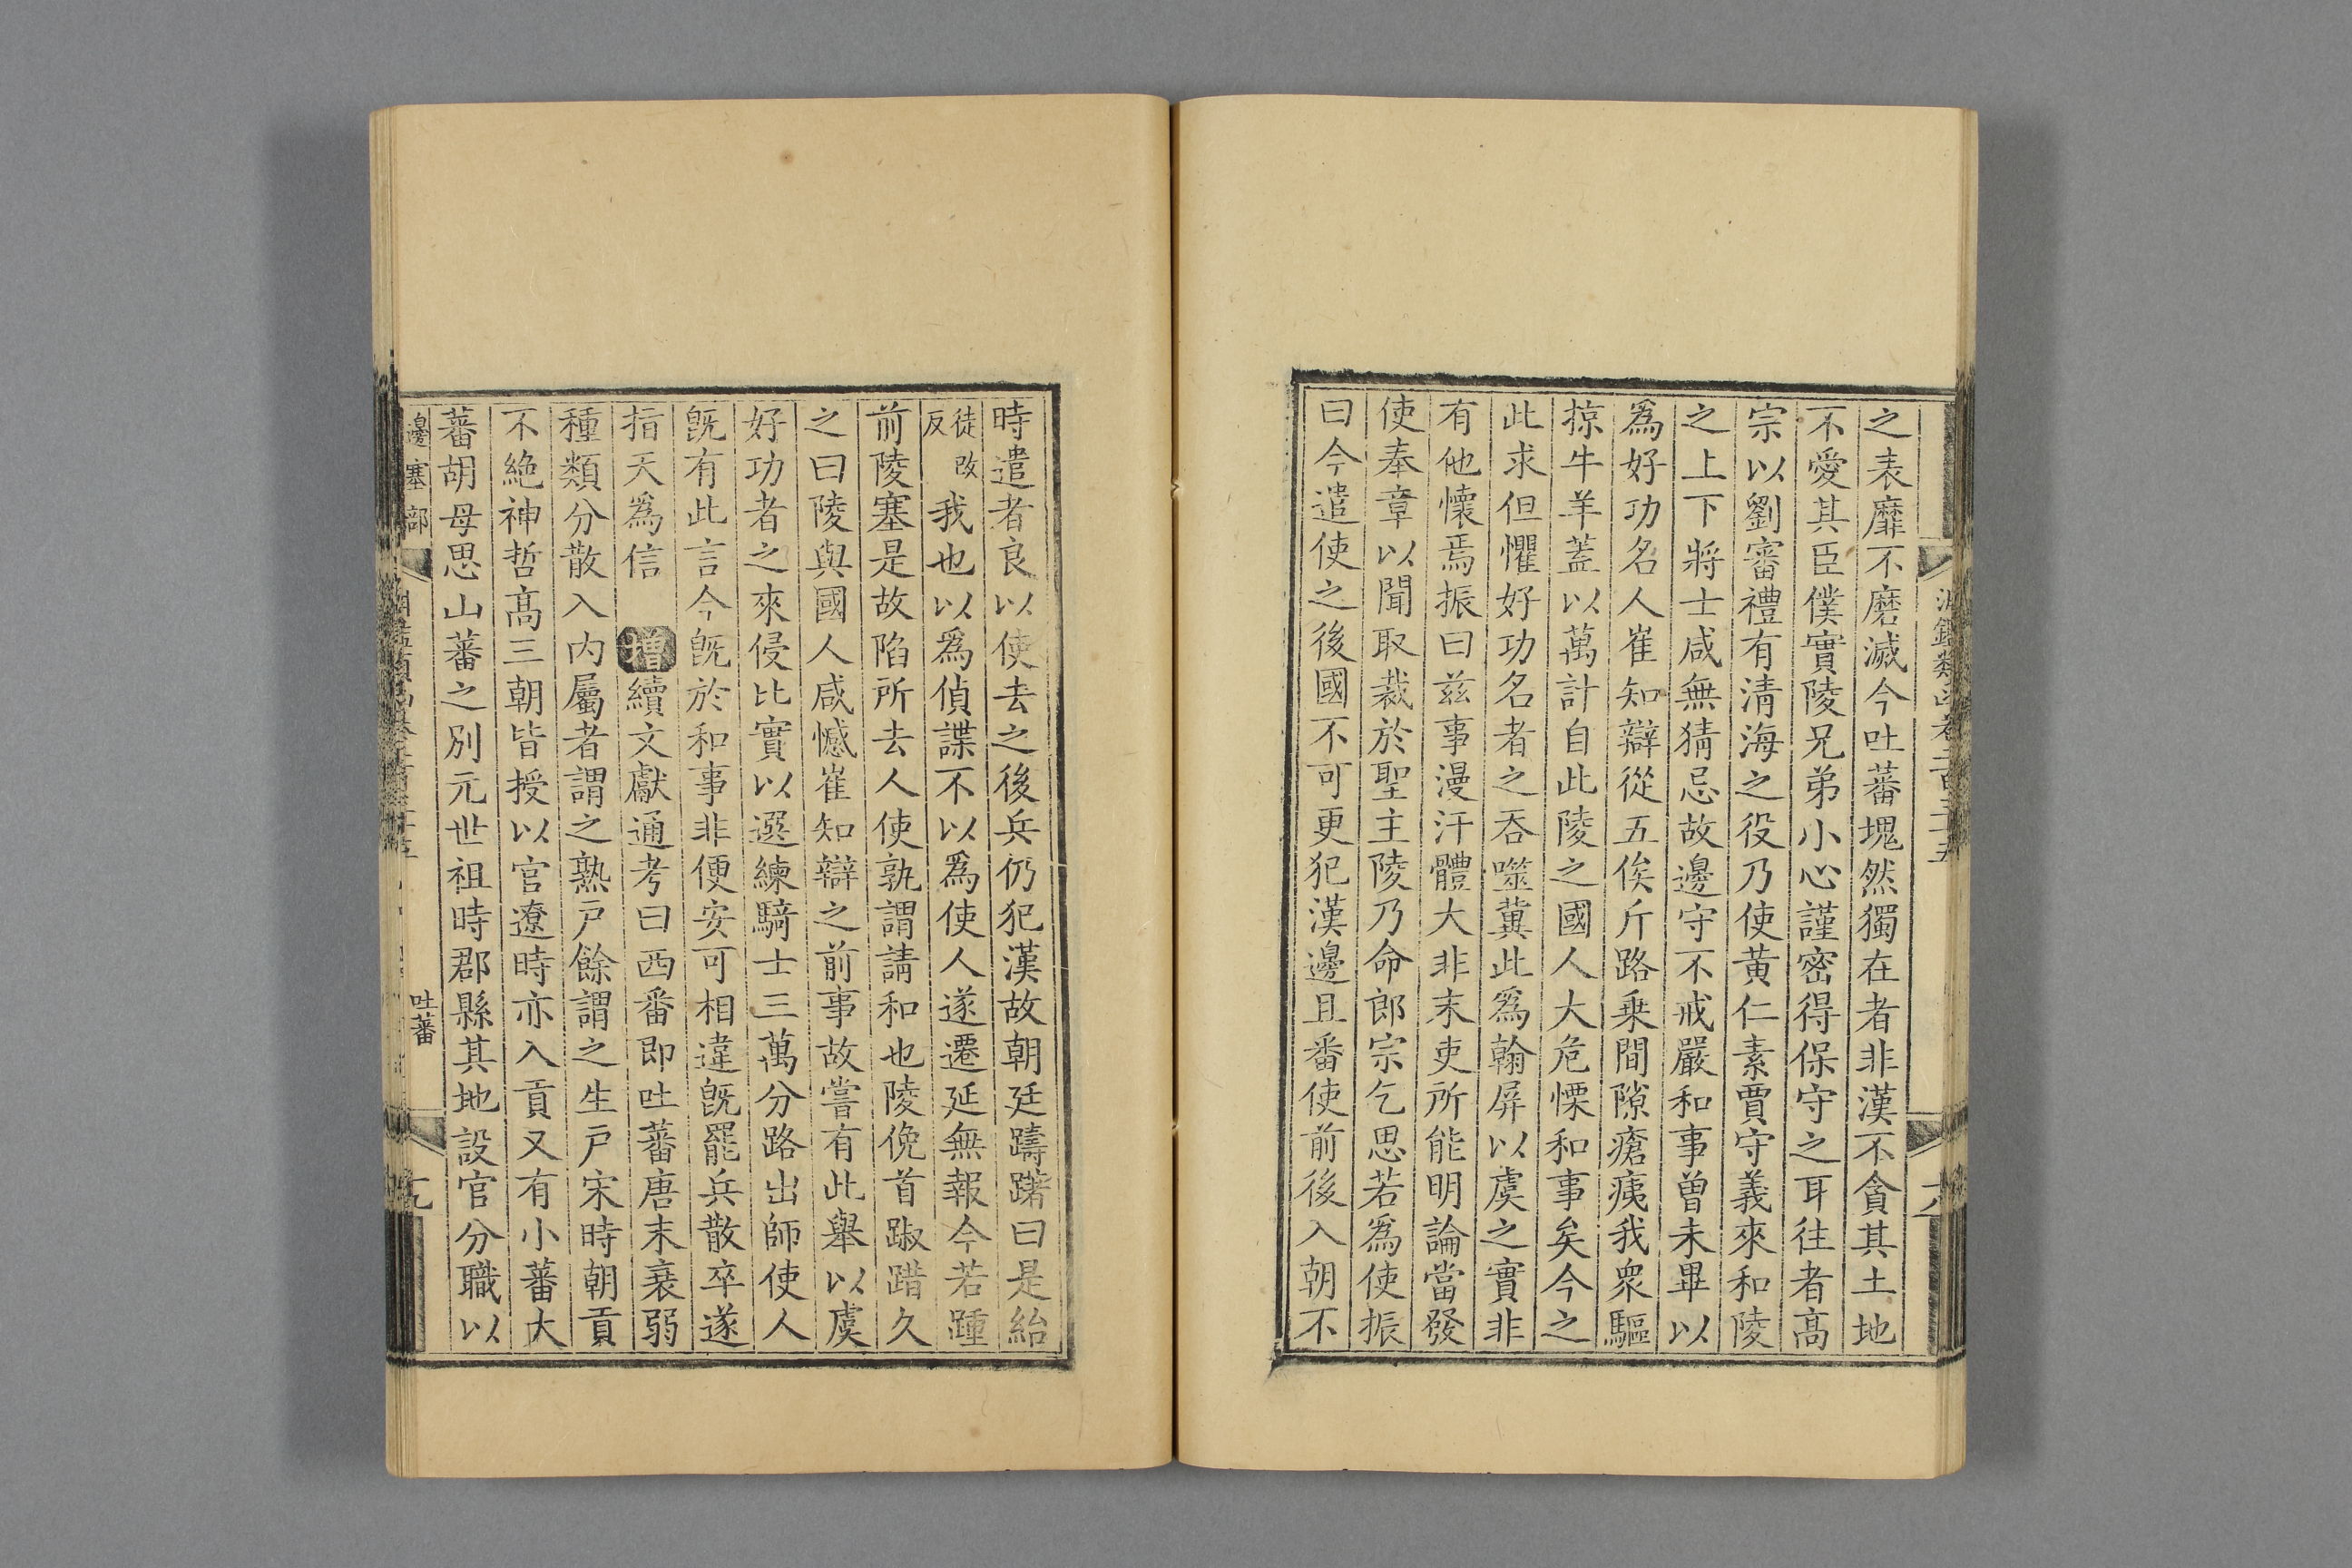 之表靡不磨滅今吐蕃塊然獨在者非漢不貪其土地
不愛其臣僕實陵兄弟小心謹密得保守之耳往者高
宗以劉審禮有清海之役乃使黃仁素賈守義來和陵
之上下將士咸無猜忌故邊守不戒嚴和事曾未畢以
爲好功名人崔知辯從五俟斤路乗間隙瘡痍我衆驅
掠牛羊蓋以萬計自此陵之國人大危慄和事矣今之
此求但懼好功名者之吞噬冀此爲翰屏以虞之實非
有他懷焉振曰兹事漫汗體大非末吏所能明論當發
使奉章以聞取裁於聖主陵乃命郎宗乞思若爲使振
曰今遣使之後國不可更犯漢邊且番使前後入朝不
時遣者良以使去之後兵仍犯漢故朝廷躊躇曰是紿
徒改反我也以爲偵諜不以爲使人遂遷延無報今若踵
前陵塞是故陷所去人使孰謂請和也陵俛首踧踖久
之曰陵與國人咸憾崔知辯之前事故嘗有此舉以虞
好功者之來侵比實以選練騎士三萬分路出師使人
旣有此言今旣於和事非便安可相違旣罷兵散卒遂
指天爲信 增續文獻通考曰西番即吐蕃唐末衰弱
種類分散入内屬者謂之熟戸餘謂之生戸宋時朝貢
不絶神哲高三朝皆授以官遼時亦入貢又有小蕃大
蕃胡母思山蕃之別元世祖時郡縣其地設官分職以
邊塞部
吐蕃